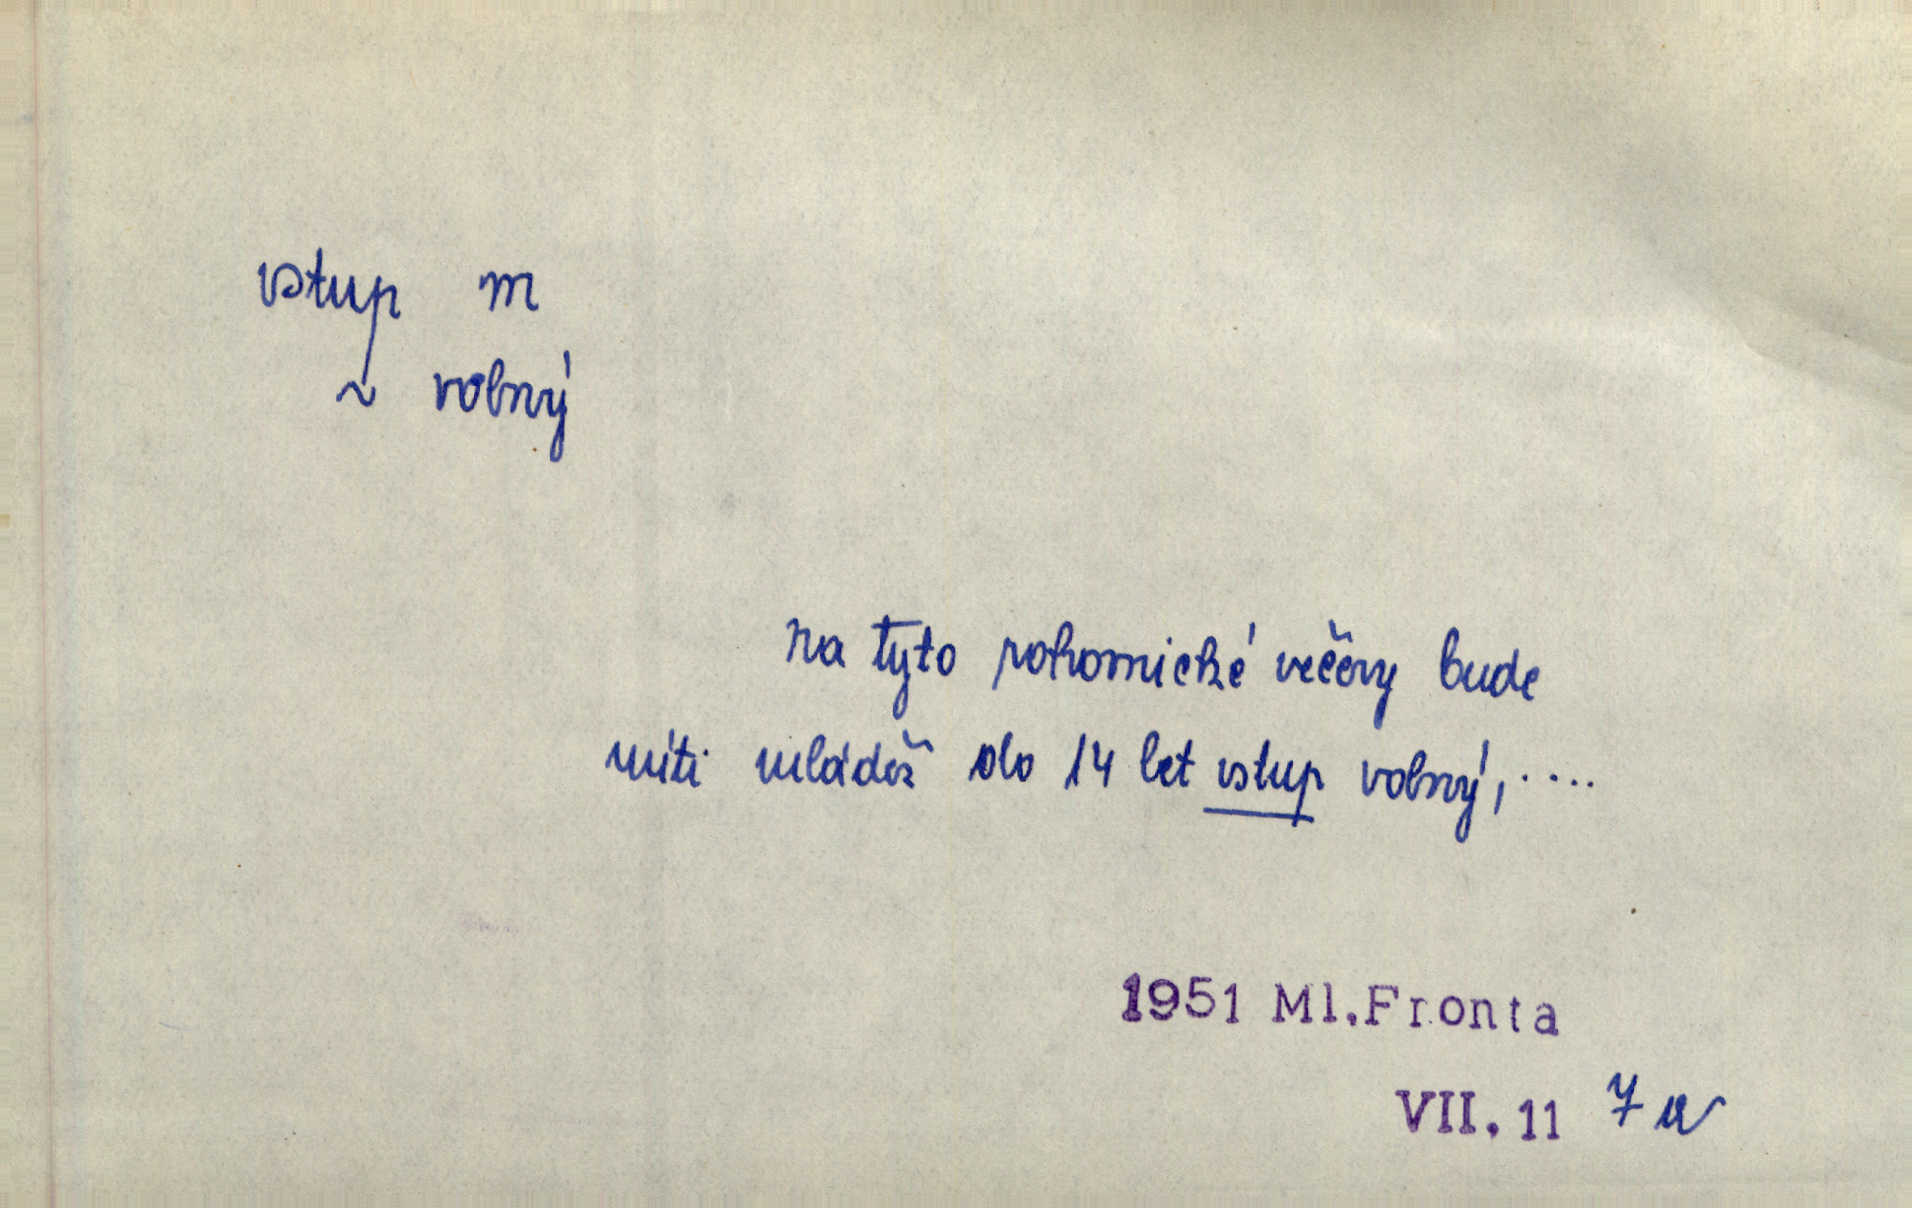 vstup m
~ volný
Na tyto rohovnické večery bude
míti mládež do 14 let vstup volný, ....
1951 Ml.Fronta
VII. 11 7a